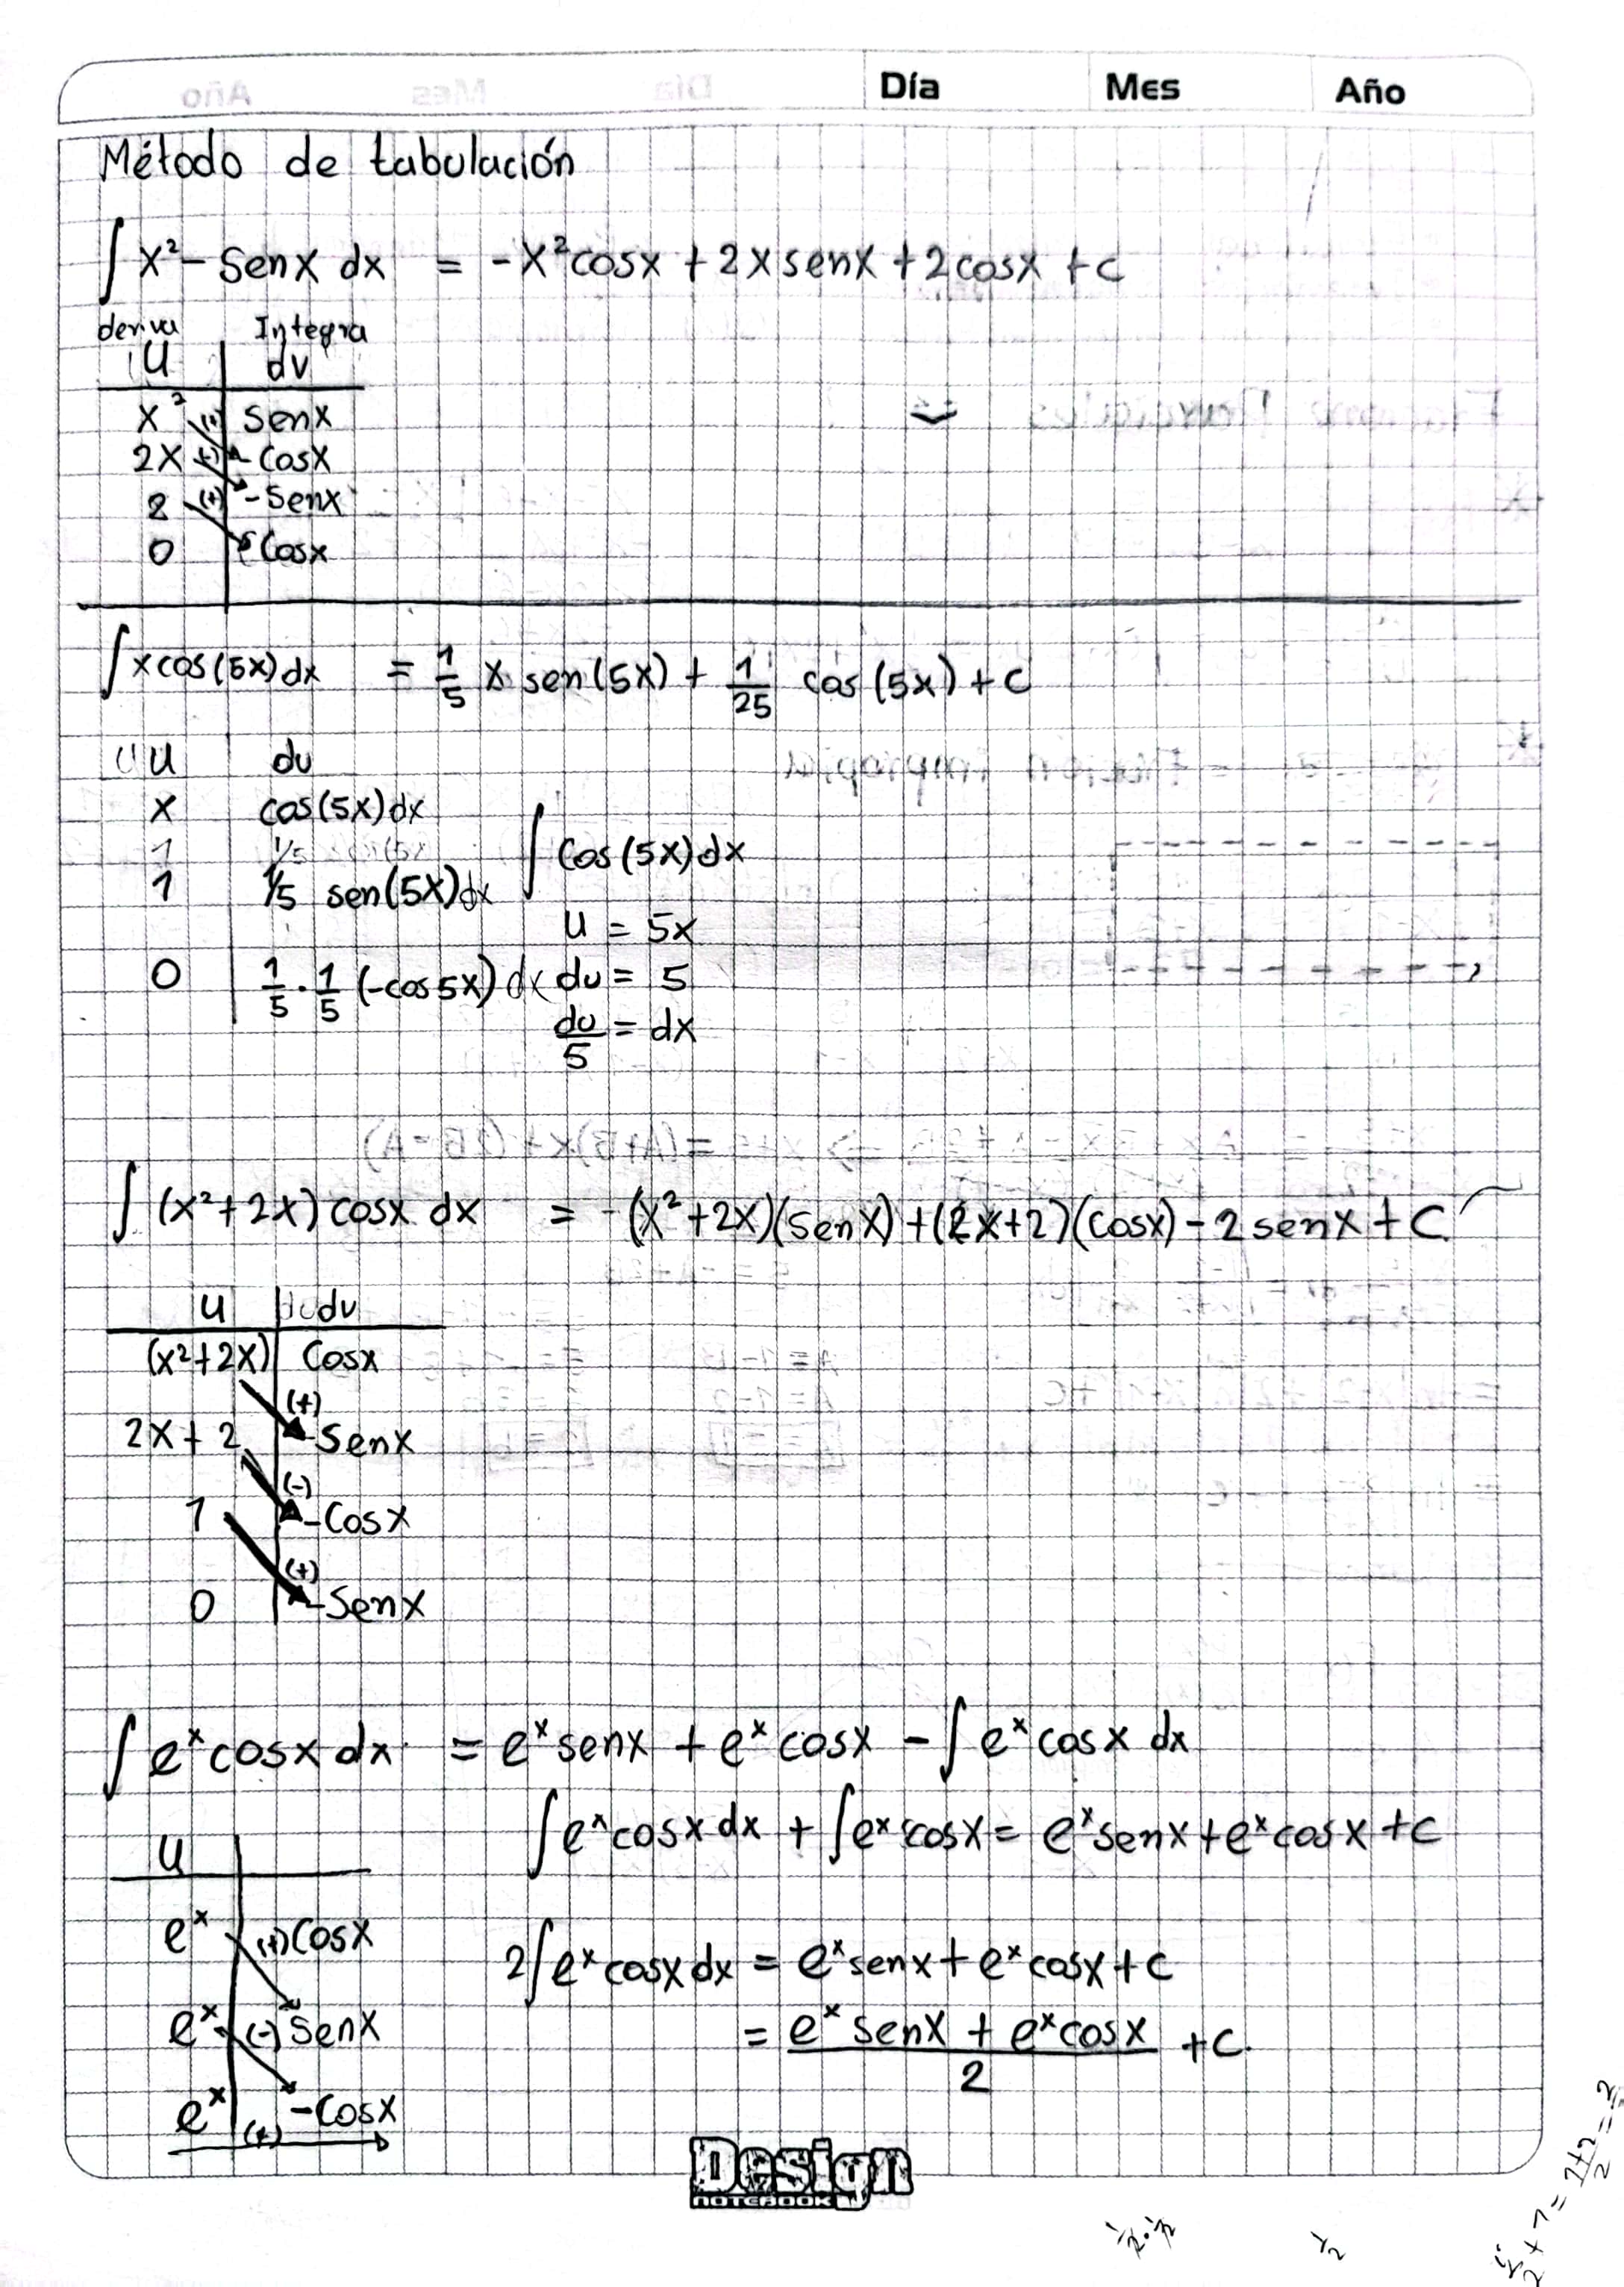 Día Mes Año
Método de tabulación
∫ x² - Senx dx = -x²cosx + 2x senx + 2cosx + c
deriva Integra
u dv
x² (+) Senx
2x (-) - Cosx
2 (+) - Senx
0 Cosx
∫ x cos(5x) dx = 1/5 x sen(5x) + 1/25 cos(5x) + c
u du
x cos(5x)dx
1 1/5
1 1/5 sen(5x)dx
∫ cos(5x)dx
u = 5x
0 1/5 · 1/5 (-cos5x) dx
du = 5
du/5 = dx
∫ (x²+2x) cosx dx = -(x²+2x)(senx) + (2x+2)(cosx) - 2senx + C
u dv
(x²+2x) Cosx
(+)
2x+2 -Senx
(-)
1 -Cosx
(+)
0 -Senx
∫ eˣcosx dx = eˣsenx + eˣcosx - ∫ eˣcosx dx
∫ eˣcosx dx + ∫ eˣcosx = eˣsenx + eˣcosx + c
u
eˣ (+) Cosx
2∫ eˣcosx dx = eˣsenx + eˣcosx + c
eˣ (-) Senx
= eˣ senx + eˣcosx / 2 + c.
eˣ (+) -Cosx
Design
NOTEBOOK
1/2